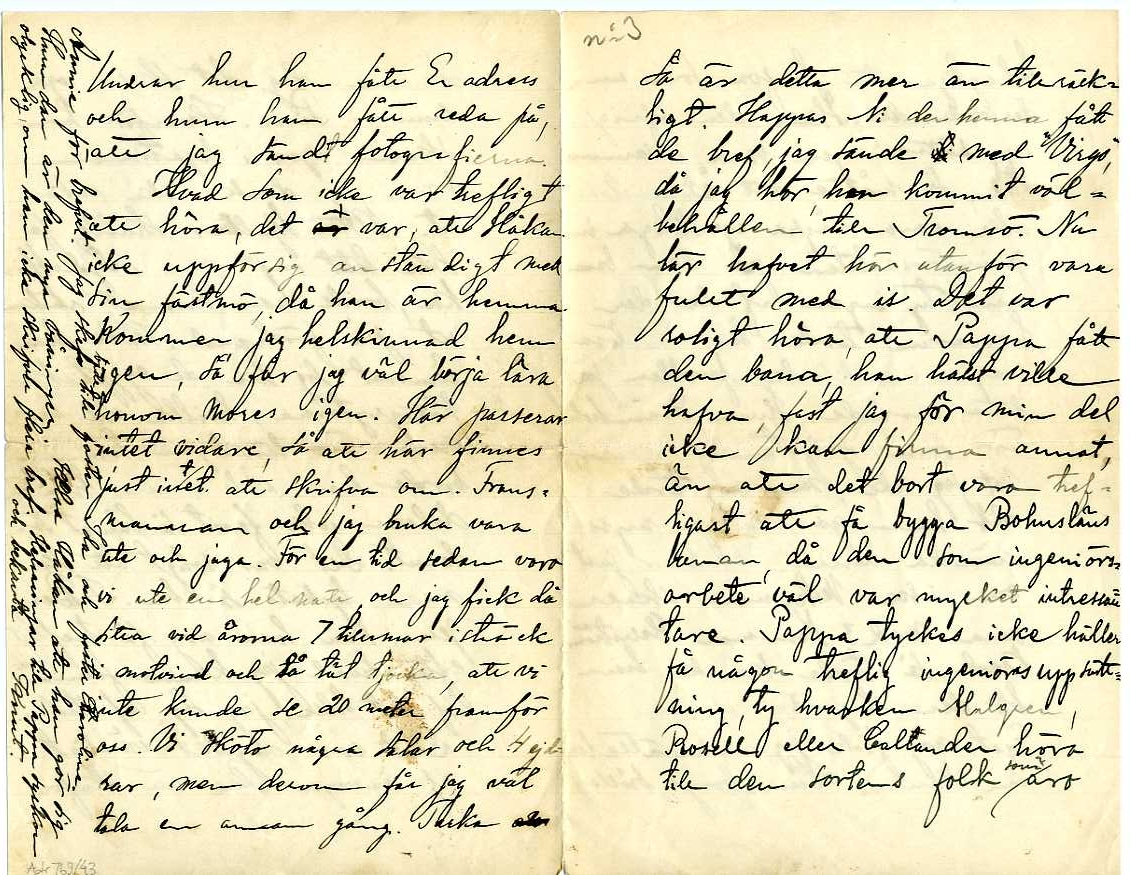 N:o 3
Undrar hur han fått Er adress
och hurn han fått reda på,
att jag sändt fotografierna.
Hvad som icke var trefligt
att höra, det var, att Håkan
icke uppför sig anständigt med
sin fästmö, då han är hemma.
Kommer jag helskinnad hem
igen, så får jag väl börja lära
honom Mores igen. Här passerar
intet vidare, så att här finnes
just intet att skrifva om. Frans-
mannen och jag bruka vara
ute och jaga. För en tid sedan voro
vi ute en hel natt, och jag fick då
sitta vid årorna 7 timmar i sträck
i motvind och så tät tjocka, att vi
inte kunde se 20 meter framför
oss. Vi sköto några sälar och 4 ejd-
rar, men derom får jag väl
tala en annan gång. Tacka
Annie för brefvet. Jag skref till faster
och faster Karolina.
Hurudan är den nya våningen. Hälsa Håkan att han gör sig
olycklig, om han icke skrifvit flera bref. Helsningar till Pappa syskon
och bekanta
Så är detta mer än tillräck-
ligt. Hoppas Ni der hemma fått
de bref, jag sände med "Virgo",
då jag hör, hon kommit väl-
behållen till Tromsö. Nu
lär hafvet här utanför vara
fullt med is. Det var
roligt höra, att Pappa fått
den bana, han hälst ville
hafva, fast jag för min del
icke kan finna annat,
än att det bort vara tref-
ligast att få bygga Bohusläns
banan, då den som ingeniörs-
arbete väl var mycket intressan
tare. Pappa tyckes icke häller
få någon treflig ingeniörsuppsätt-
ning, ty hvarken Malgren,
Rosell eller Callander höra
till den sortens folk som äro
Adr 769/43